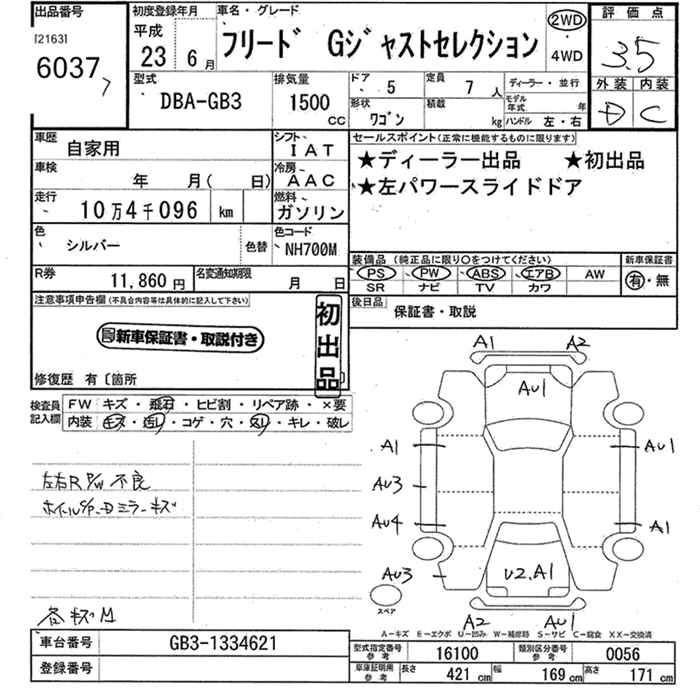 出品番号
[2163]
6037
初度登録年月
平成
23 6月
車名・グレード
フリード Gジャストセレクション
2WD
・
4WD
評価点
3.5
外装 内装
D C
型式
DBA-GB3
排気量
1500
CC
ドア 5
定員 7人
ディーラー・並行
形状 ワゴン
積載 kg
モデル年式 年
ハンドル 左・右
車歴
自家用
シフト
IAT
セールスポイント(正常に機能するものに限ります)
★ディーラー出品 ★初出品
★左パワースライドドア
車検
年 月( 日)
冷房
AAC
走行
10万4千096 km
燃料
ガソリン
色
シルバー
色替
色コード
NH700M
装備品(純正品に限り○をつけてください)
PS PW ABS エアB AW
SR ナビ TV カワ
新車保証書
有・無
R券
11,860円
名変通知期限
月 日
後日品
保証書・取説
注意事項申告欄(不具合内容等は具体的に記入して下さい)
新車保証書・取説付き
初出品
修復歴 有〔箇所
検査員記入欄
FW キズ・飛石・ヒビ割・リペア跡・×要
内装 キズ・汚レ・コゲ・穴・スレ・キレ・破レ
左右R P/W 不良
各キズM
A1 A2
AU1
A1 AU1
AU3
AU4 A1
AU3
U2.A1
スペア
A2 AU1
A-キズ E-エクボ U-凹み W-補修跡 S-サビ C-腐食 XX-交換済
車台番号
GB3-1334621
登録番号
型式指定番号
参考
16100
類別区分番号
参考
0056
車庫証明用
参考
長さ 421 cm
幅 169 cm
高さ 171 cm